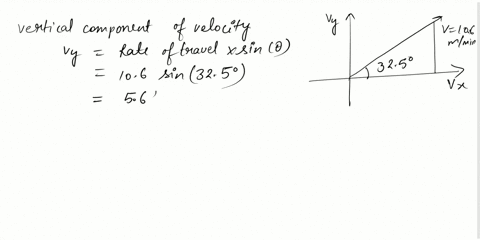 vertical component of velocity
vy = Rate of travel x sin (θ)
= 10.6 sin (32.5°)
= 5.6'
vy
V=10.6
m/min
32.5°
Vx